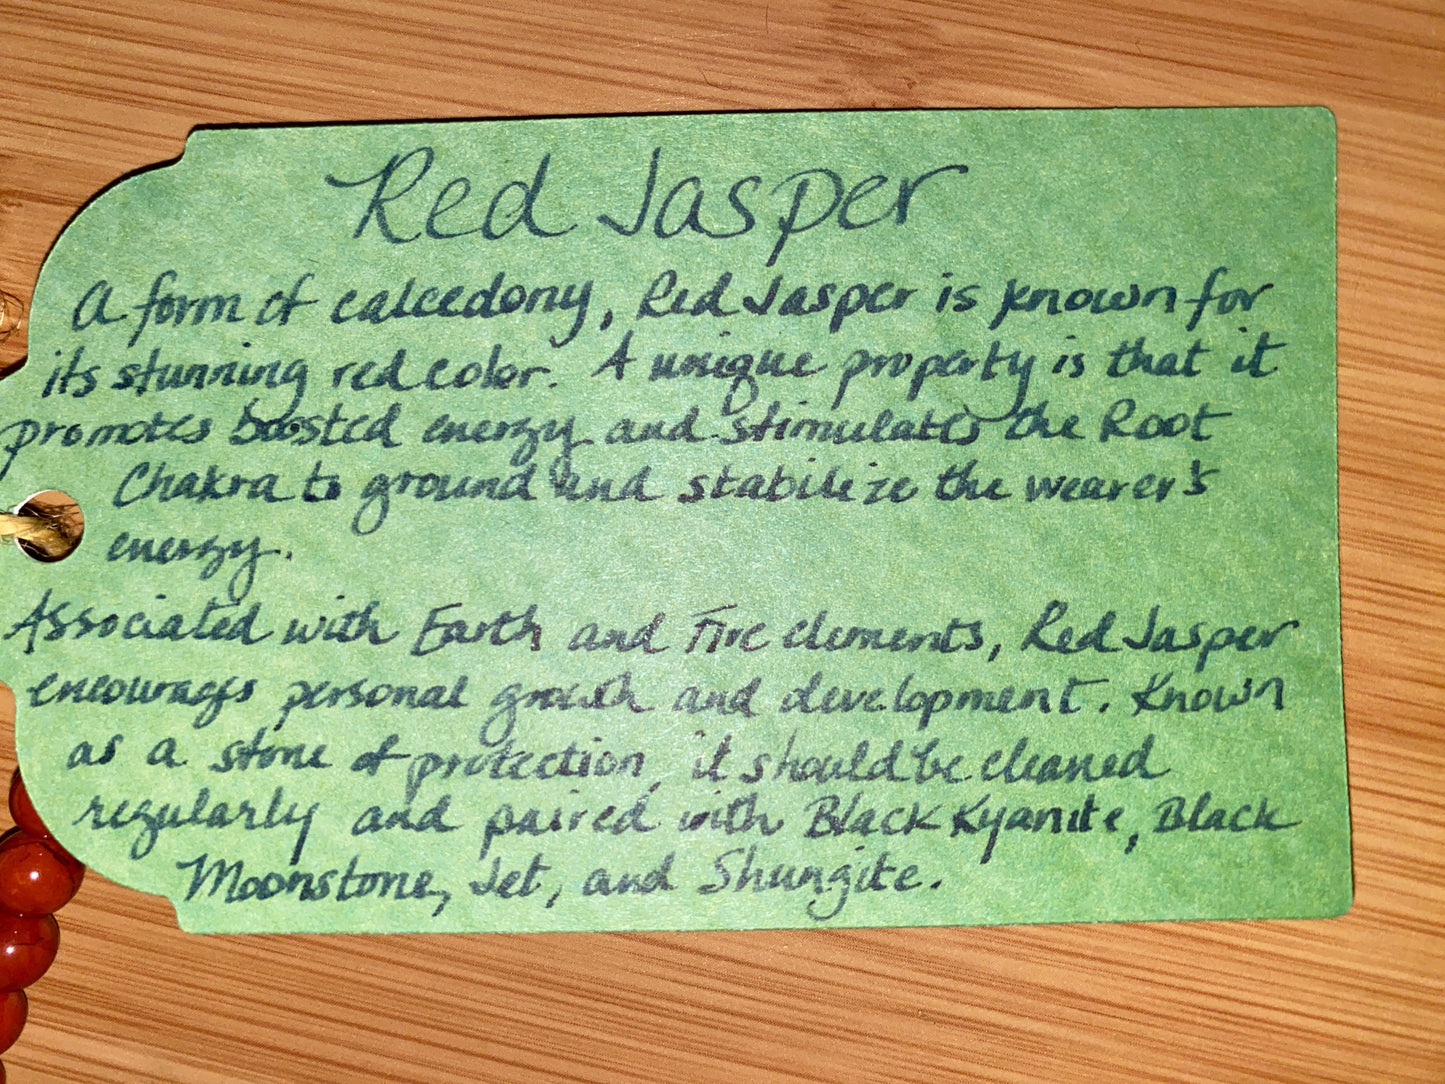 Red Jasper
A form of calcedony, Red Jasper is known for
its stunning red color. A unique property is that it
promotes boosted energy and stimulates the Root
Chakra to ground and stabilize the wearer's
energy.
Associated with Earth and Fire elements, Red Jasper
encourages personal growth and development. Known
as a stone of protection, it should be cleaned
regularly and paired with Black Kyanite, Black
Moonstone, Jet, and Shungite.